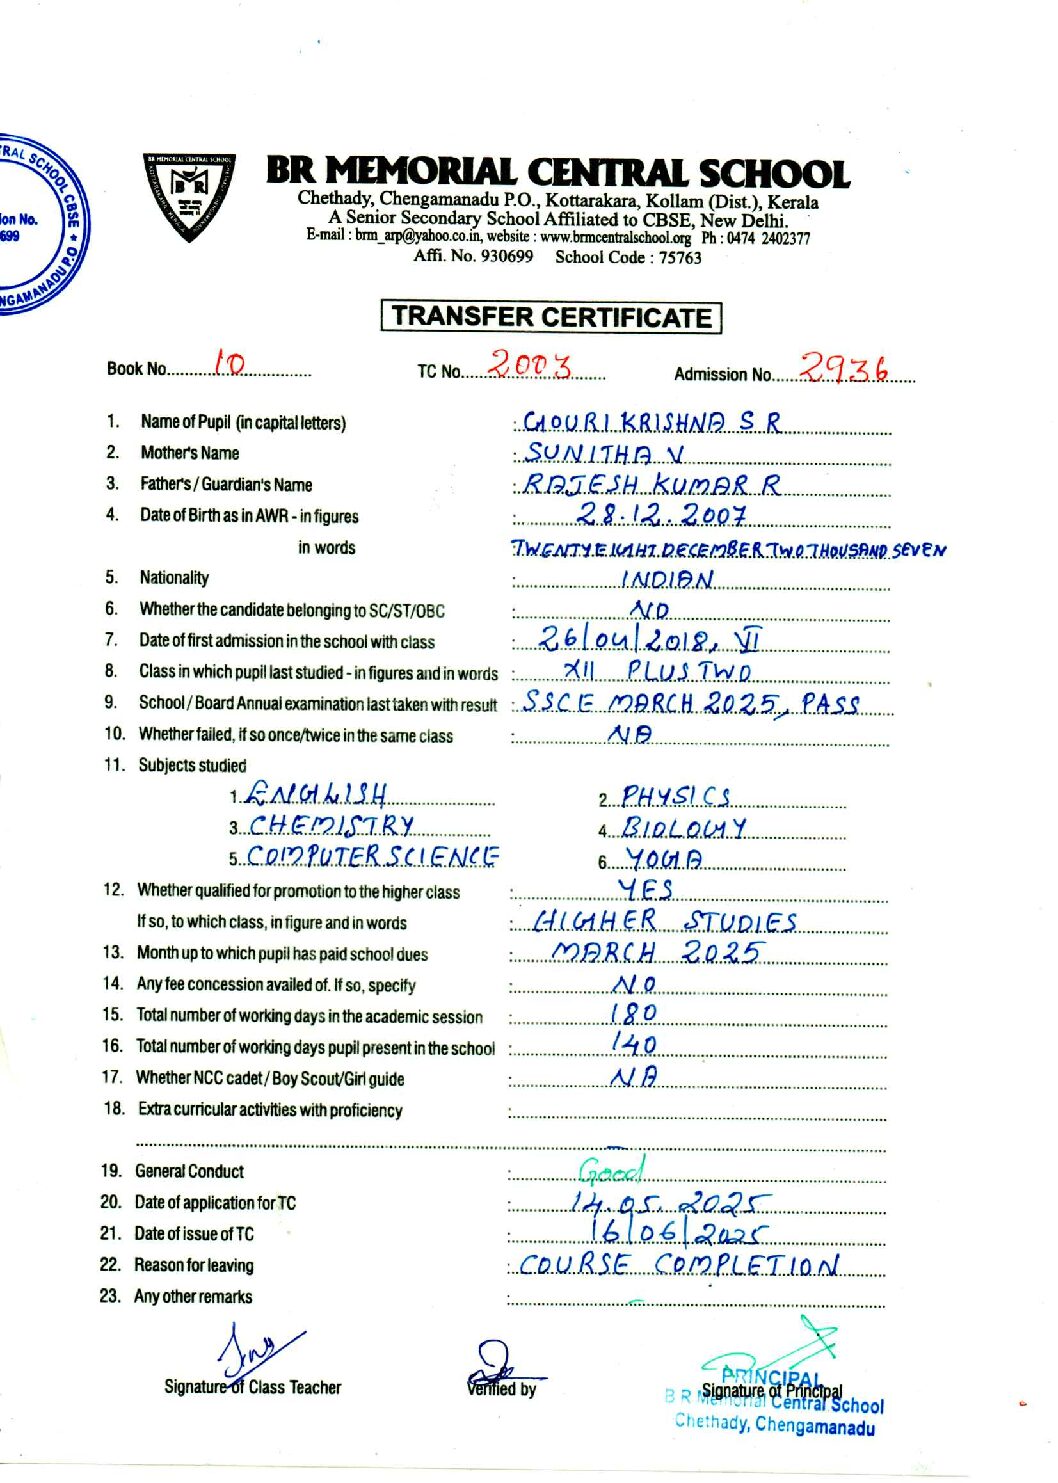 TRAL SCHOOL CBSE
ion No.
699
NGAMANADU P.O
BR MEMORIAL CENTRAL SCHOOL
BR
BR MEMORIAL CENTRAL SCHOOL
Chethady, Chengamanadu P.O., Kottarakara, Kollam (Dist.), Kerala
A Senior Secondary School Affiliated to CBSE, New Delhi.
E-mail : brm_arp@yahoo.co.in, website : www.brmcentralschool.org Ph : 0474 2402377
Affi. No. 930699 School Code : 75763
TRANSFER CERTIFICATE
Book No. 10 TC No. 2003 Admission No. 2936
1. Name of Pupil (in capital letters) : GOURI KRISHNA S R
2. Mother's Name : SUNITHA V
3. Father's / Guardian's Name : RAJESH KUMAR R
4. Date of Birth as in AWR - in figures : 28.12.2007
in words TWENTY EIGHT DECEMBER TWO THOUSAND SEVEN
5. Nationality : INDIAN
6. Whether the candidate belonging to SC/ST/OBC : NO
7. Date of first admission in the school with class : 26/04/2018, VI
8. Class in which pupil last studied - in figures and in words : XII PLUS TWO
9. School / Board Annual examination last taken with result : SSCE MARCH 2025, PASS
10. Whether failed, if so once/twice in the same class : NA
11. Subjects studied
1. ENGLISH 2. PHYSICS
3. CHEMISTRY 4. BIOLOGY
5. COMPUTER SCIENCE 6. YOGA
12. Whether qualified for promotion to the higher class : YES
If so, to which class, in figure and in words : HIGHER STUDIES
13. Month up to which pupil has paid school dues : MARCH 2025
14. Any fee concession availed of. If so, specify : NO
15. Total number of working days in the academic session : 180
16. Total number of working days pupil present in the school : 140
17. Whether NCC cadet / Boy Scout/Girl guide : NA
18. Extra curricular activities with proficiency :
19. General Conduct : Good
20. Date of application for TC : 14.05.2025
21. Date of issue of TC : 16/06/2025
22. Reason for leaving : COURSE COMPLETION
23. Any other remarks :
Signature of Class Teacher Verified by Signature of Principal
PRINCIPAL
B R Memorial Central School
Chethady, Chengamanadu